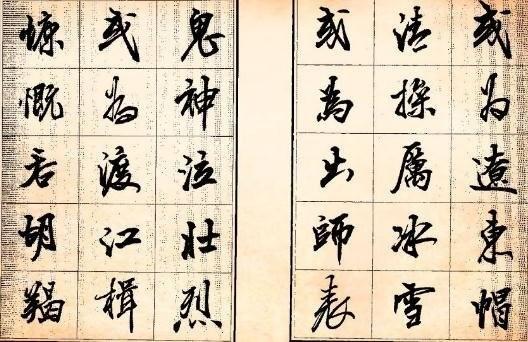 或為遼東帽
清操厲冰雪
或為出師表
鬼神泣壯烈
或為渡江楫
慷慨吞胡羯